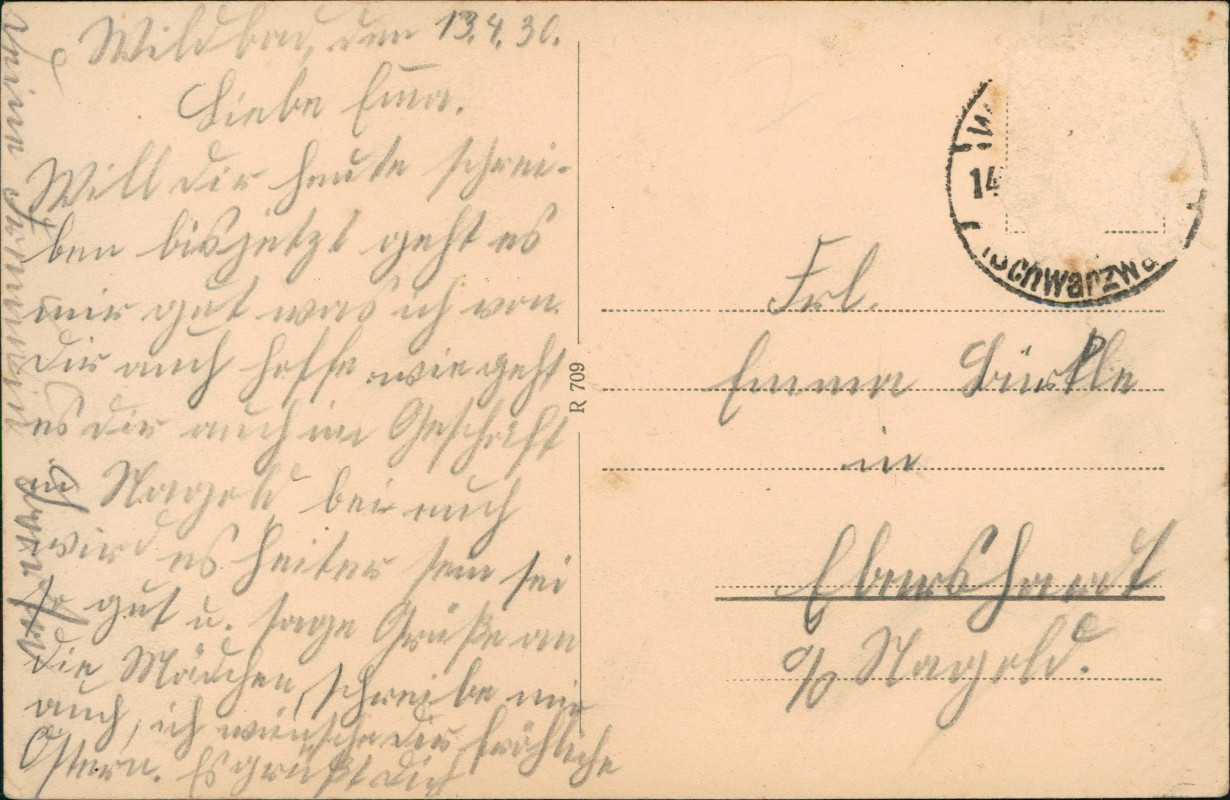 Wildbad, den 13.4.30.
Liebe Emma.
Will dir heute schrei-
ben bis jetzt geht es
mir gut was ich von
Dir auch hoffe wie geht
es dir auch im Geschäft
in Nagold bei euch
wird es heiter sein sei
so gut u. sage Grüße an
die Mädchen, schreibe mir
auch, ich wünsche dir fröhliche
Ostern. Es grüßt dich
Deine Freundin
14
Schwarzwa
R 709
Frl.
Emma Bürkle
in
Ebershardt
o/ Nagold.